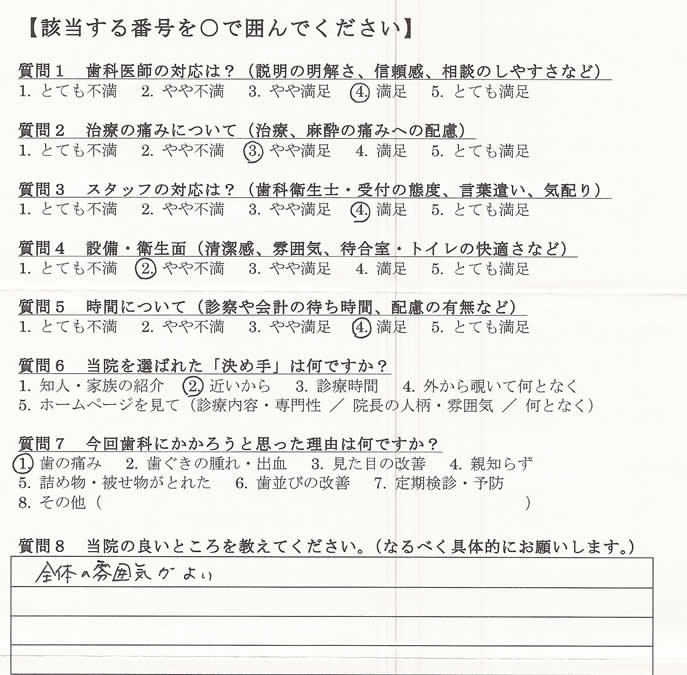 【該当する番号を○で囲んでください】
質問1 歯科医師の対応は？（説明の明解さ、信頼感、相談のしやすさなど）
1. とても不満 2. やや不満 3. やや満足 4. 満足 5. とても満足
質問2 治療の痛みについて（治療、麻酔の痛みへの配慮）
1. とても不満 2. やや不満 3. やや満足 4. 満足 5. とても満足
質問3 スタッフの対応は？（歯科衛生士・受付の態度、言葉遣い、気配り）
1. とても不満 2. やや不満 3. やや満足 4. 満足 5. とても満足
質問4 設備・衛生面（清潔感、雰囲気、待合室・トイレの快適さなど）
1. とても不満 2. やや不満 3. やや満足 4. 満足 5. とても満足
質問5 時間について（診察や会計の待ち時間、配慮の有無など）
1. とても不満 2. やや不満 3. やや満足 4. 満足 5. とても満足
質問6 当院を選ばれた「決め手」は何ですか？
1. 知人・家族の紹介 2. 近いから 3. 診療時間 4. 外から覗いて何となく
5. ホームページを見て（診療内容・専門性 ／ 院長の人柄・雰囲気 ／ 何となく）
質問7 今回歯科にかかろうと思った理由は何ですか？
1. 歯の痛み 2. 歯ぐきの腫れ・出血 3. 見た目の改善 4. 親知らず
5. 詰め物・被せ物がとれた 6. 歯並びの改善 7. 定期検診・予防
8. その他（ ）
質問8 当院の良いところを教えてください。（なるべく具体的にお願いします。）
全体の雰囲気がよい